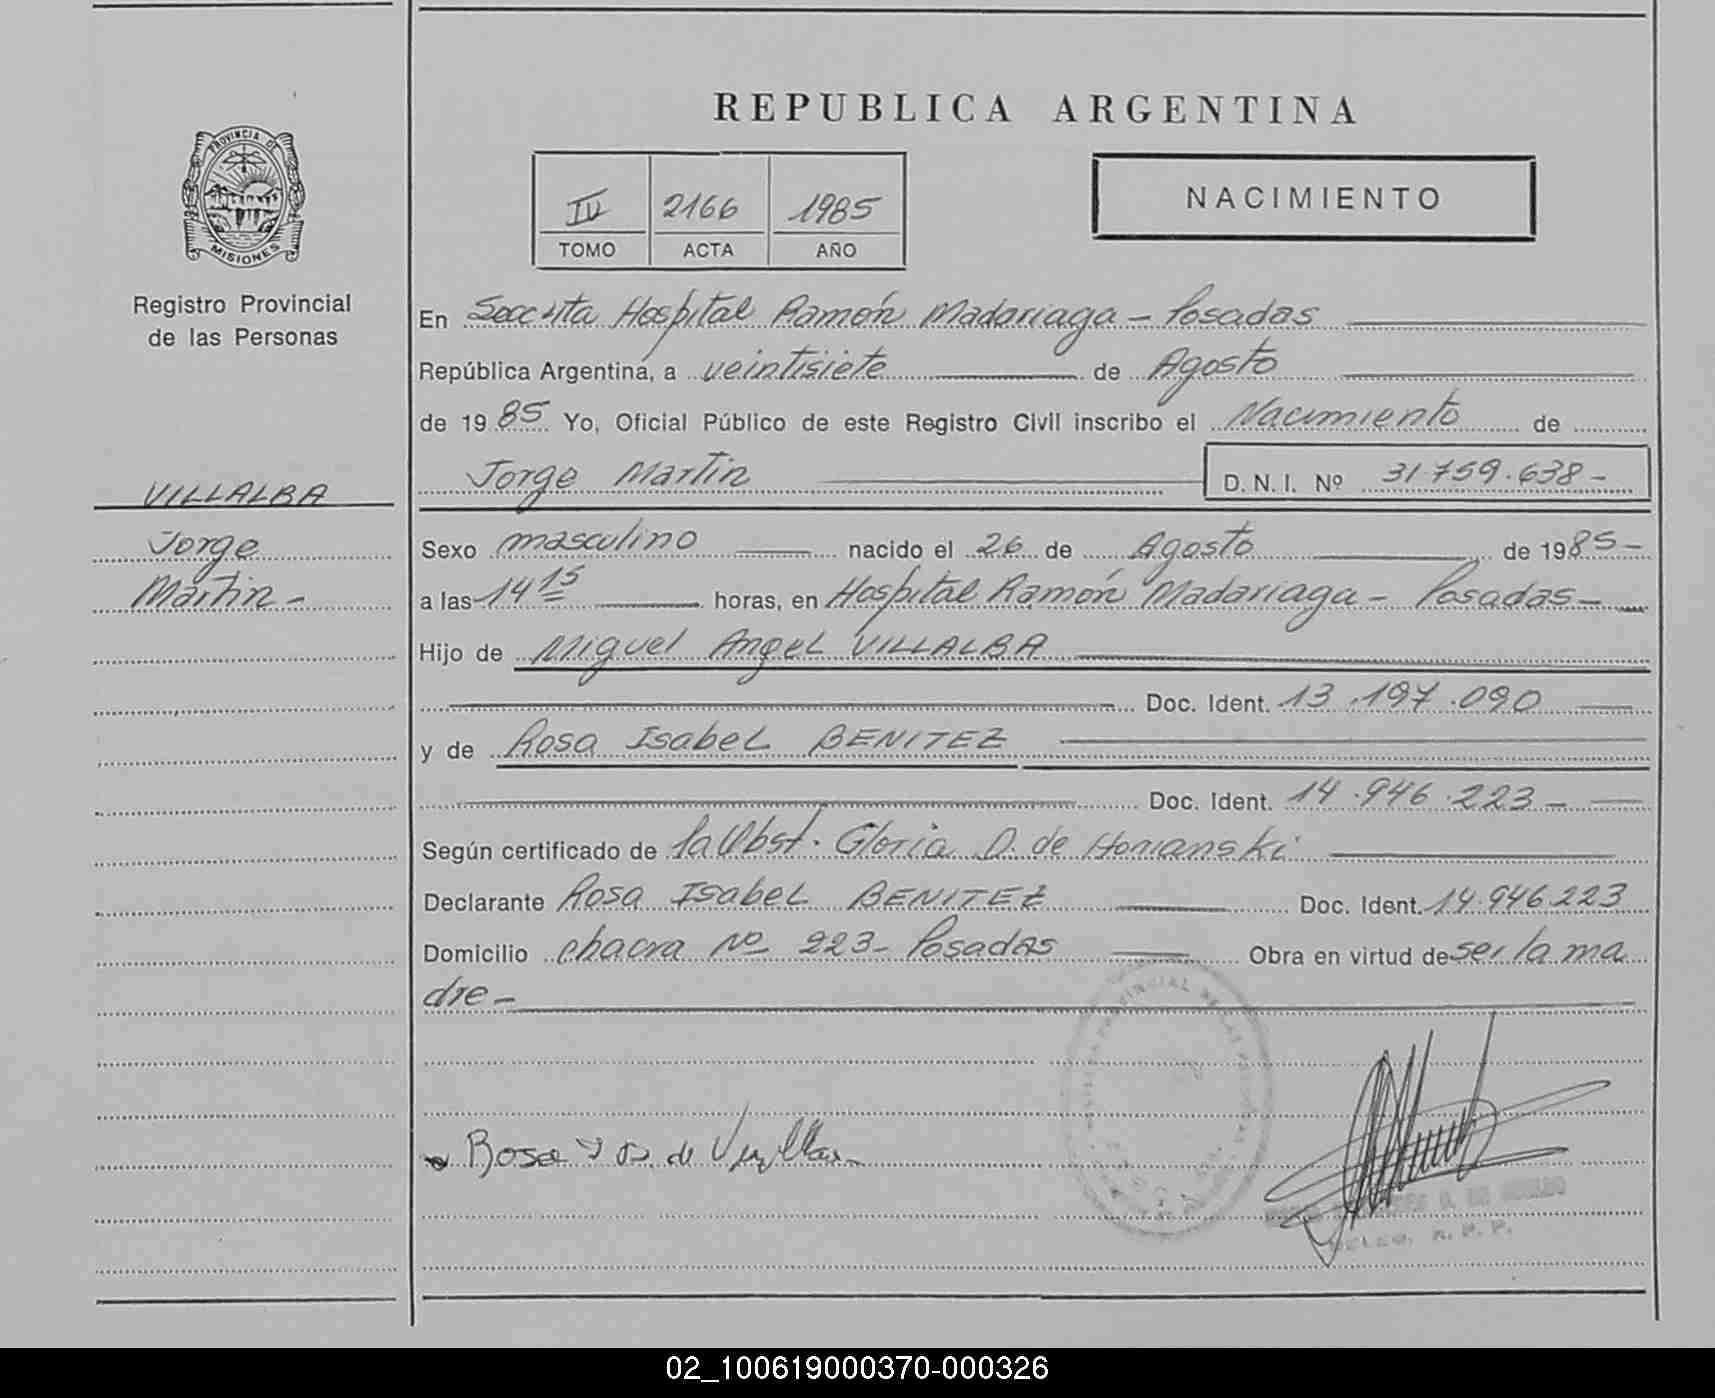 REPUBLICA ARGENTINA
PROVINCIA DE
MISIONES
Registro Provincial
de las Personas
IV 2166 1985
TOMO ACTA AÑO
NACIMIENTO
En Secc 4ta Hospital Ramón Madariaga - Posadas
República Argentina, a veintisiete de Agosto
de 1985 Yo, Oficial Público de este Registro Civil inscribo el Nacimiento de
Jorge Martin D. N. I. Nº 31.759.638-
VILLALBA
Jorge
Martin-
Sexo masculino nacido el 26 de Agosto de 1985-
a las 14 15 horas, en Hospital Ramón Madariaga - Posadas-
Hijo de Miguel Angel VILLALBA
Doc. Ident. 13.197.090
y de Rosa Isabel BENITEZ
Doc. Ident. 14.946.223-
Según certificado de la Obst. Gloria D. de
Declarante Rosa Isabel BENITEZ Doc. Ident. 14.946.223
Domicilio chacra Nº 223- Posadas Obra en virtud de ser la ma
dre-
Rosa
DELEG. R. P. P.
02_100619000370-000326